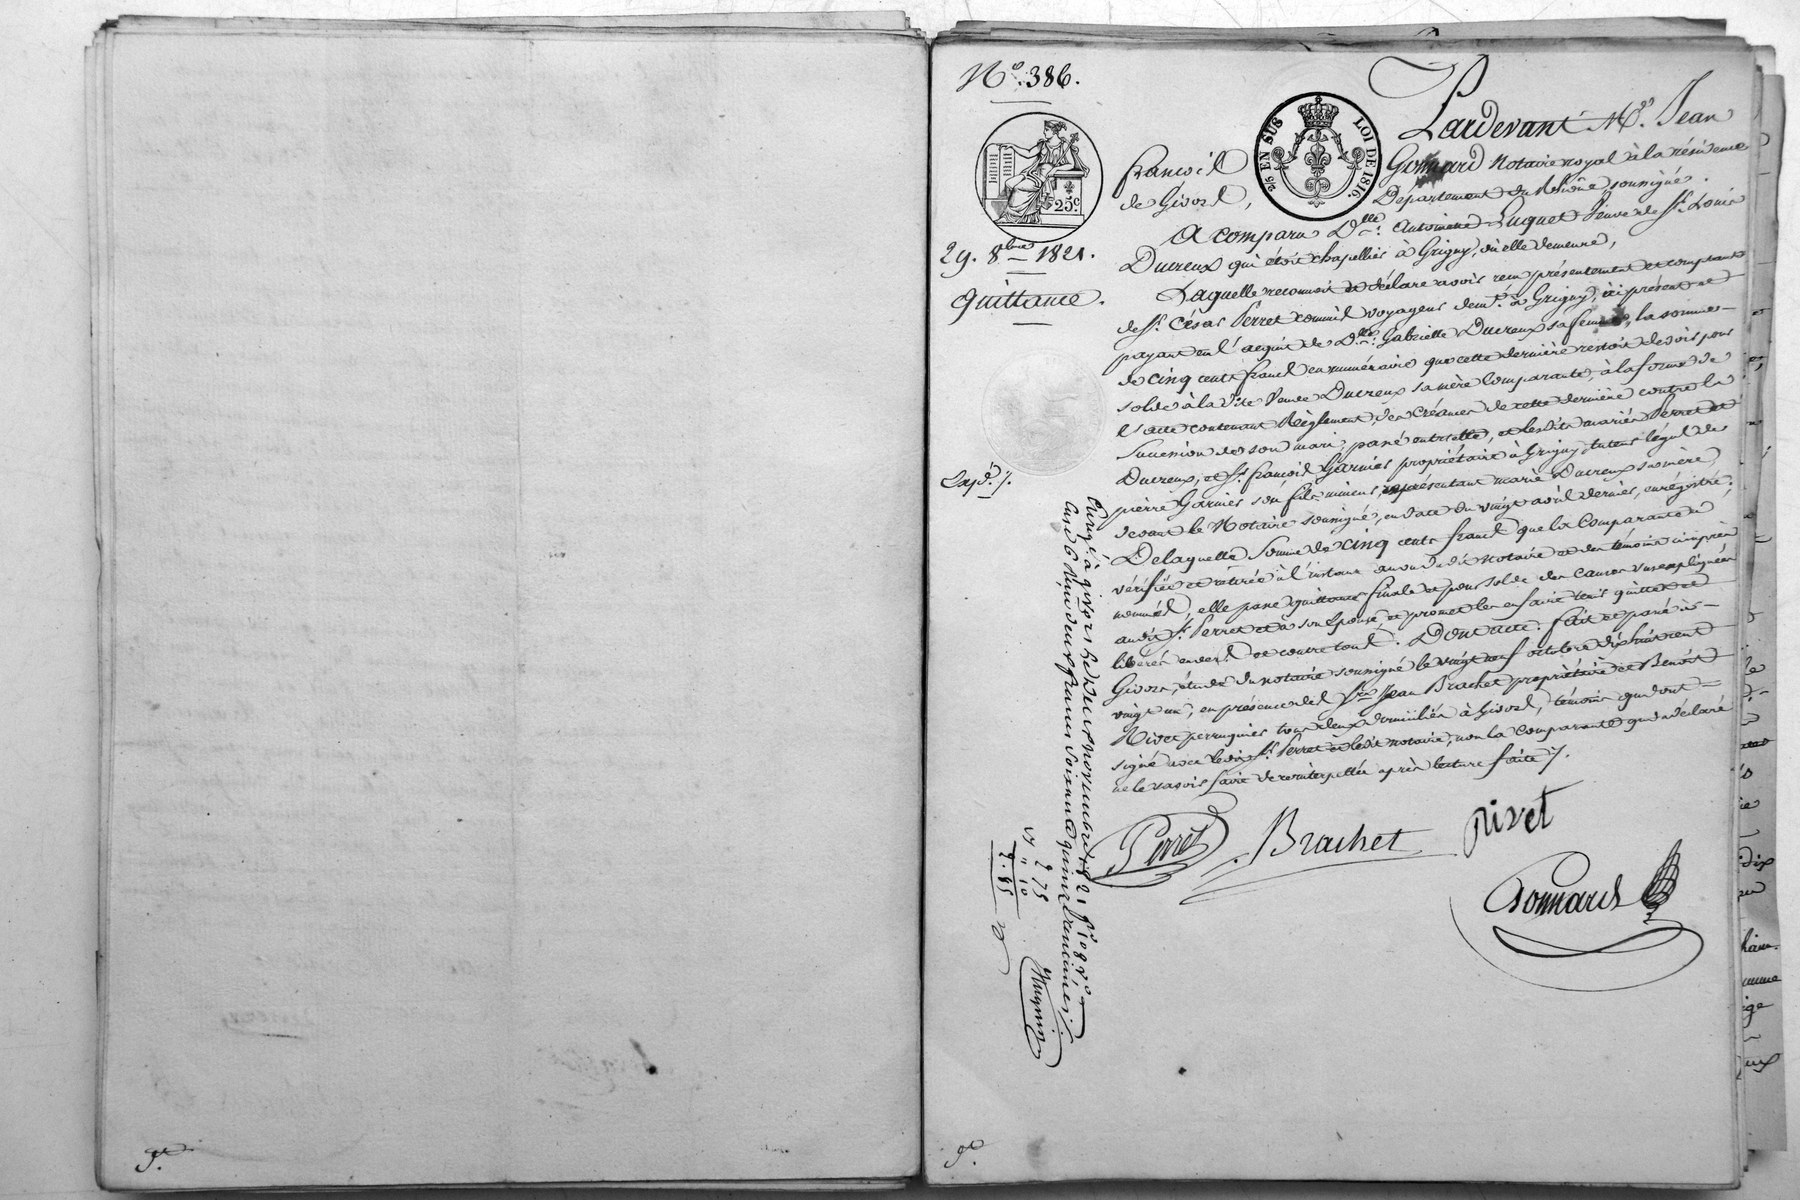 N.º 386.
25 EN SUS
LOI DE 1816
25.c
29. 8.bre 1821.
quittance.
Exp.d /.
Pardevant M.e Jean
françois Gonnard Notaire royal à la résidence
de Givors, Département du Rhône soussigné.
A comparu D.lle Antoinette Luquet Veuve de S.r Louis
Ducreux qui étoit chapellier à Grigny, où elle demeure,
Laquelle reconnoit et déclare avoir reçu présentement et comptant
de S.r César Perret commis voyageur dem.t à Grigny, ici présent et
payant en l'acquit de D.me Gabrielle Ducreux sa femme, la somme
de cinq cents francs en numéraire que cette dernière restoit devoir pour
solde à la dite Veuve Ducreux sa mère comparante, à la forme de
l'acte contenant Règlement des créances de cette dernière contre la
Succession de son mari, passé entr'elle, et lesdits mariés Perret et
Ducreux, et S.r françois Garnier propriétaire à Grigny, tuteur légal de
pierre Garnier son fils mineur, représentant marie Ducreux sa mère
devant le Notaire soussigné, en date du vingt avril dernier, enregistré;
De laquelle Somme de cinq cents francs que la Comparante a
vérifiée et retirée à l'instant au vu du dit Notaire et des témoins ci après
nommés, elle passe quittance finale et pour solde des causes susexpliquées
audit S.r Perret et à son Epouse, et promet les en faire tenir quittes et
libérés envers et contre tous. Dont acte. fait et passé à
Givors, étude du notaire soussigné le vingt neuf octobre dix huit cent
vingt un, en présence des S.rs Jean Brachet propriétaire et Benoit
Rivet perruquier tous deux domiciliés à Givors, témoins qui ont
signé avec ledit S.r Perret et ledit notaire, non la comparante qui a déclaré
ne le savoir faire de ce interpellée après lecture faite /.
Perret Brachet Rivet
Gonnard
Enreg.é à givors le deux novembre 1821 f.o 108 v.o
Reçu deux francs soixante quinze centimes
2 75
10
2. 85
Hugnin